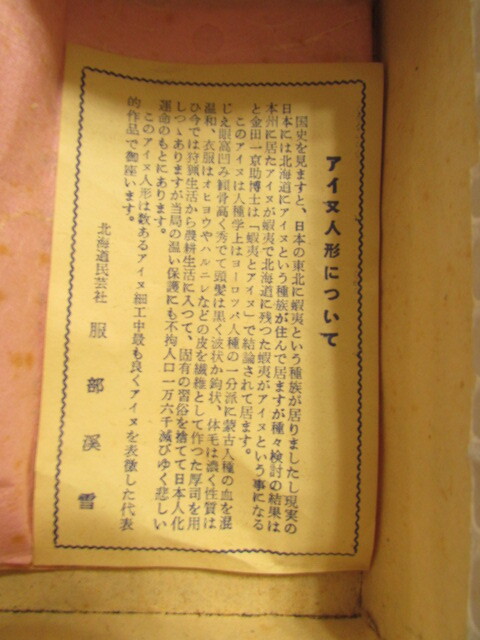 アイヌ人形について
国史を見ますと、日本の東北に蝦夷という種族が居りましたし現実の
日本には北海道にアイヌという種族が住んで居ますが種々検討の結果は
本州に居たアイヌが蝦夷で北海道に残つた蝦夷がアイヌという事になる
と金田一京助博士は「蝦夷とアイヌ」で結論されて居ます。
このアイヌは人種学上はヨーロッパ人種の一分派に蒙古人種の血を混
じえ眼高凹み顴骨高く秀でて頭髪は黒く波状か鈎状、体毛は濃く性質は
温和、衣服はオヒョウやハルニレなどの皮を繊維として作つた厚司を用
ひ今では狩猟生活から農耕生活に入つて、固有の習俗を捨てて日本人化
しつゝありますが当局の温い保護にも不拘人口一万六千滅びゆく悲しい
運命のもとにあります。
このアイヌ人形は数あるアイヌ細工中最も良くアイヌを表徴した代表
的作品で御座います。
北海道民芸社 服部溪雪